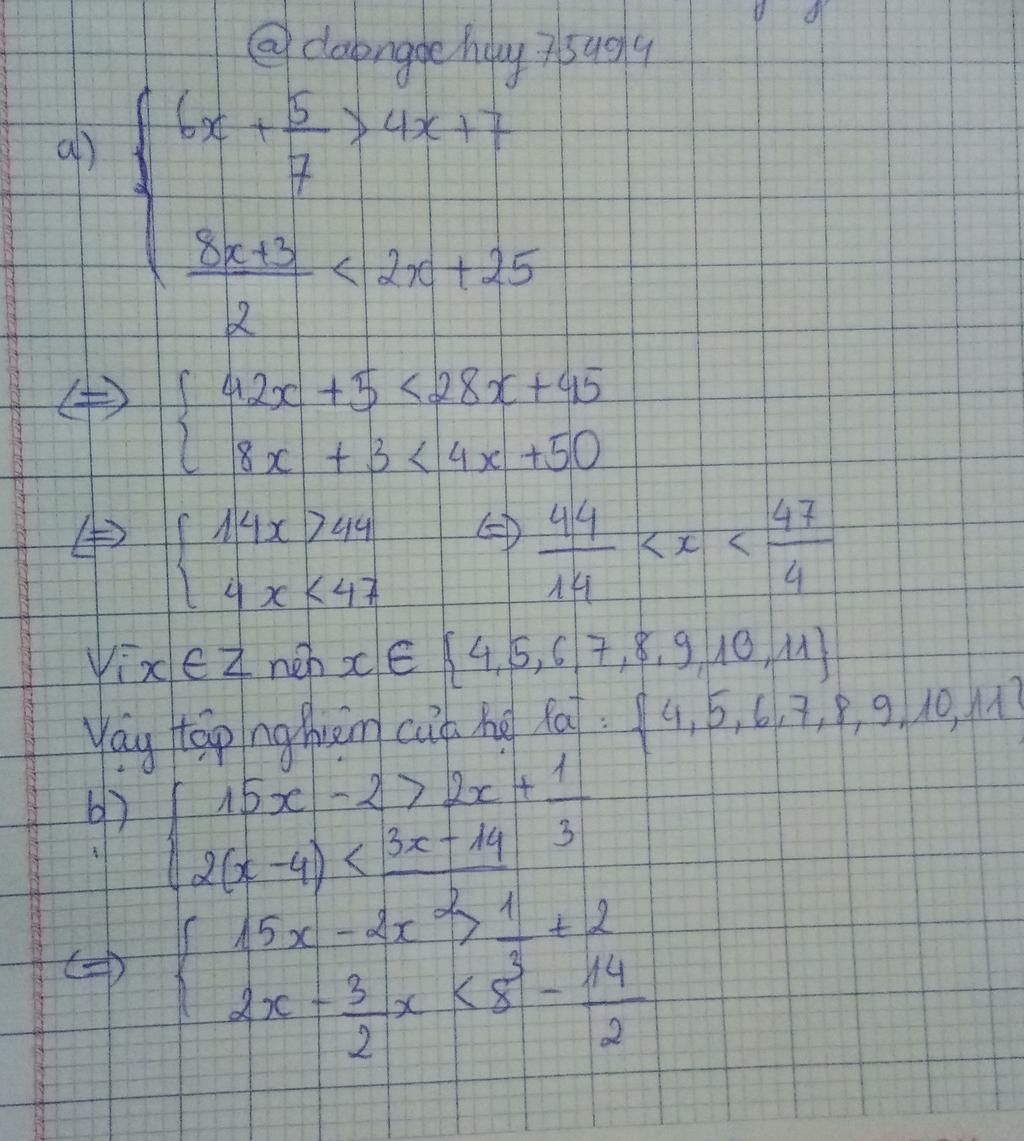 @daongochuy75494
a) { 6x + 5/7 > 4x + 7
(8x+3)/2 < 2x + 25
<=> { 42x + 5 < 28x + 45
8x + 3 < 4x + 50
<=> { 14x > 44 <=> 44/14 < x < 47/4
4x < 47
Vì x ∈ Z nên x ∈ {4,5,6,7,8,9,10,11}
Vậy tập nghiệm của hệ là: {4,5,6,7,8,9,10,11}
b) { 15x - 2 > 2x + 1/3
2(x-4) < (3x-14)/2
<=> { 15x - 2x > 1/3 + 2
2x - 3/2 x < 8 - 14/2